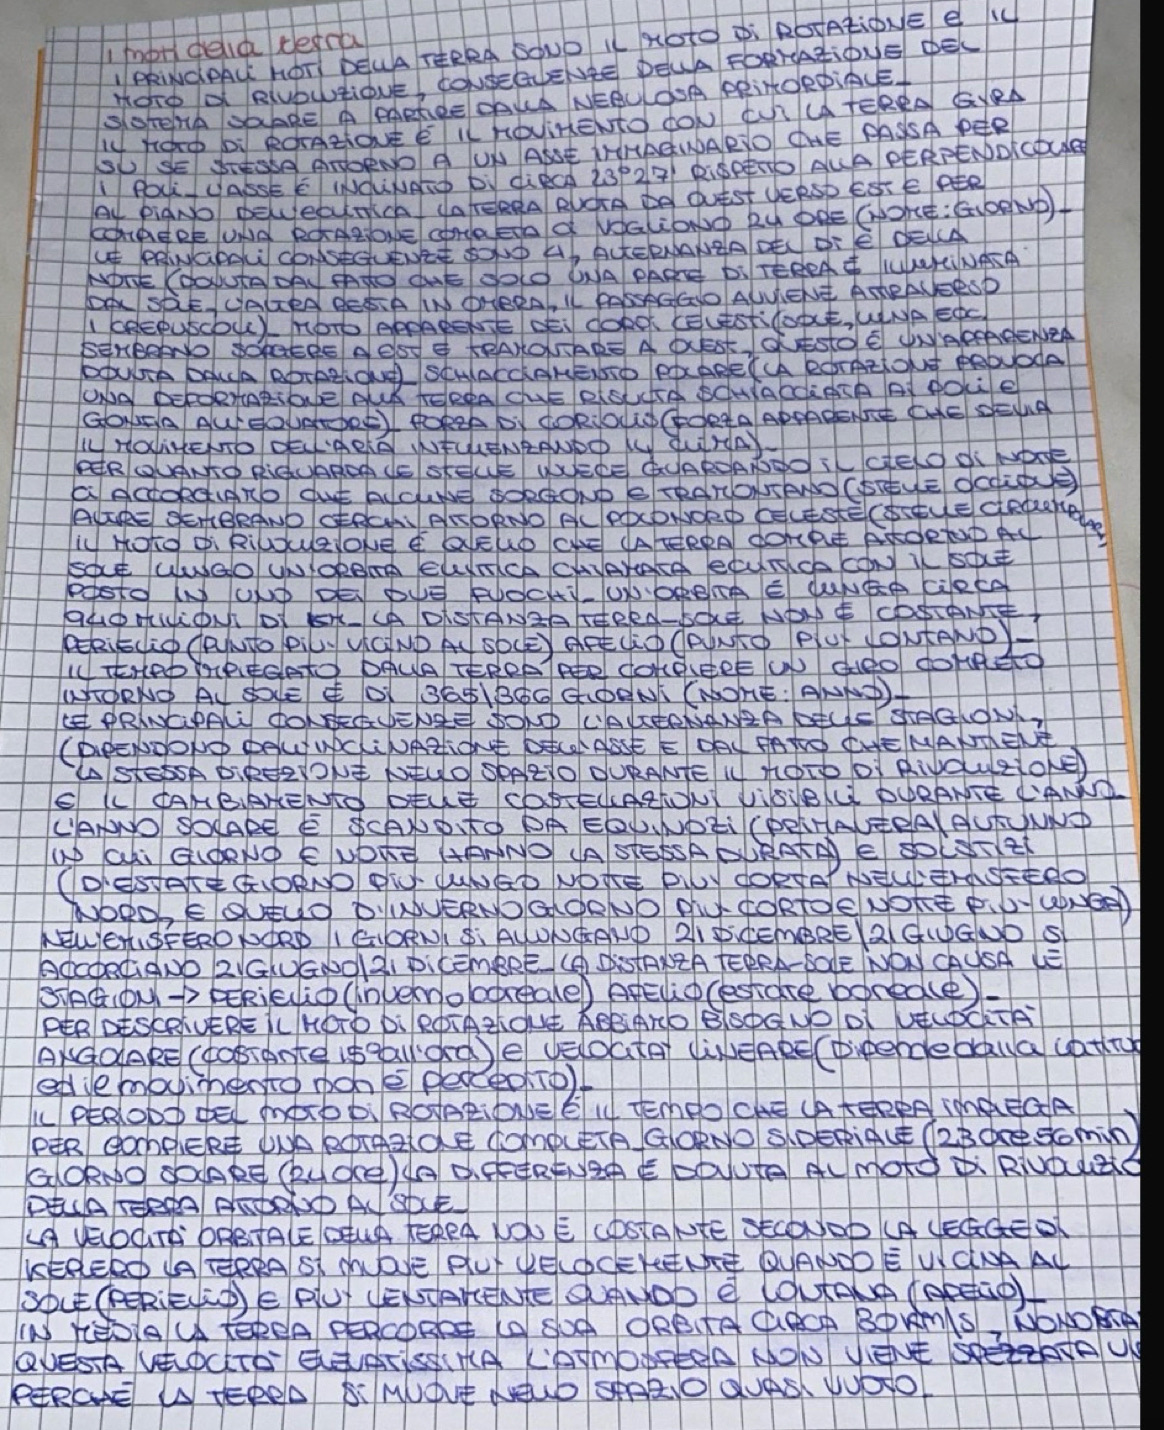 I moti della terra
I PRINCIPALI MOTI DELLA TERRA SONO IL MOTO DI ROTAZIONE E IL
MOTO DI RIVOLUZIONE, CONSEGUENZE DELLA FORMAZIONE DEL
SISTEMA SOLARE A PARTIRE DALLA NEBULOSA PRIMORDIALE_
IL MOTO DI ROTAZIONE È IL MOVIMENTO CON CUI LA TERRA GIRA
SU SE STESSA ATTORNO A UN ASSE IMMAGINARIO CHE PASSA PER
I POLI_ L'ASSE È INCLINATO DI CIRCA 23°27' RISPETTO ALLA PERPENDICOLARE
AL PIANO DELL'ECLITTICA_ LA TERRA RUOTA DA OVEST VERSO EST E PER
COMPIERE UNA ROTAZIONE COMPLETA CI VOGLIONO 24 ORE (NOME: GIORNO)_
LE PRINCIPALI CONSEGUENZE SONO 4, ALTERNANZA DEL DÌ E DELLA
NOTTE (DOVUTA DAL FATTO CHE SOLO UNA PARTE DI TERRA È ILLUMINATA
DAL SOLE, L'ALTRA RESTA IN OMBRA, IL PASSAGGIO AVVIENE ATTRAVERSO
I CREPUSCOLI)_ MOTO APPARENTE DEI CORPI CELESTI (SOLE, LUNA ECC
SEMBRANO SORGERE A EST E TRAMONTARE A OVEST, QUESTO È UN'APPARENZA
DOVUTA DALLA ROTAZIONE)_ SCHIACCIAMENTO POLARE (LA ROTAZIONE PROVOCA
UNA DEFORMAZIONE ALLA TERRA CHE RISULTA SCHIACCIATA AI POLI E
GONFIA ALL'EQUATORE)_ FORZA DI CORIOLIS (FORZA APPARENTE CHE DEVIA
IL MOVIMENTO DELL'ARIA INFLUENZANDO IL CLIMA)_
PER QUANTO RIGUARDA LE STELLE INVECE GUARDANDO IL CIELO DI NOTTE
CI ACCORGIAMO CHE ALCUNE SORGONO E TRAMONTANO (STELLE OCCIDUE)
ALTRE SEMBRANO CERCHI ATTORNO AL POLO NORD CELESTE (STELLE CIRCUMPOLARI)
IL MOTO DI RIVOLUZIONE È QUELLO CHE LA TERRA COMPIE ATTORNO AL
SOLE LUNGO UN'ORBITA ELLITTICA CHIAMATA ECLITTICA CON IL SOLE
POSTO IN UNO DEI DUE FUOCHI_ UN'ORBITA È LUNGA CIRCA
940 MILIONI DI KM_ LA DISTANZA TERRA-SOLE NON È COSTANTE,
PERIELIO (PUNTO PIU' VICINO AL SOLE) AFELIO (PUNTO PIU' LONTANO)_
IL TEMPO IMPIEGATO DALLA TERRA PER COMPIERE UN GIRO COMPLETO
INTORNO AL SOLE È DI 365\366 GIORNI (NOME: ANNO)_
LE PRINCIPALI CONSEGUENZE SONO L'ALTERNANZA DELLE STAGIONI,
(DIPENDONO DALL'INCLINAZIONE DELL'ASSE E DAL FATTO CHE MANTIENE
LA STESSA DIREZIONE NELLO SPAZIO DURANTE IL MOTO DI RIVOLUZIONE)
E IL CAMBIAMENTO DELLE COSTELLAZIONI VISIBILI DURANTE L'ANNO_
L'ANNO SOLARE È SCANDITO DA EQUINOZI (PRIMAVERA\AUTUNNO
IN CUI GIORNO E NOTTE HANNO LA STESSA DURATA) E SOLSTIZI
(D'ESTATE GIORNO PIU' LUNGO NOTTE PIU' CORTA NELL'EMISFERO
NORD, E QUELLO D'INVERNO GIORNO PIU' CORTO E NOTTE PIU' LUNGA)
NELL'EMISFERO NORD I GIORNI SI ALLUNGANO 21 DICEMBRE\21 GIUGNO SI
ACCORCIANO 21 GIUGNO\21 DICEMBRE_ LA DISTANZA TERRA-SOLE NON CAUSA LE
STAGIONI -> PERIELIO (inverno boreale) AFELIO (estate boreale)_
PER DESCRIVERE IL MOTO DI ROTAZIONE ABBIAMO BISOGNO DI VELOCITA'
ANGOLARE (COSTANTE 15° all'ora) E VELOCITA' LINEARE (Dipende dalla latitu
ed il movimento non è percepito)_
IL PERIODO DEL MOTO DI ROTAZIONE È IL TEMPO CHE LA TERRA IMPIEGA
PER COMPIERE UNA ROTAZIONE COMPLETA_ GIORNO SIDERIALE (23 ore 56 min)
GIORNO SOLARE (24 ore) LA DIFFERENZA È DOVUTA AL MOTO DI RIVOLUZIO
DELLA TERRA ATTORNO AL SOLE_
LA VELOCITÀ ORBITALE DELLA TERRA NON È COSTANTE SECONDO LA LEGGE DI
KEPLERO LA TERRA SI MUOVE PIU' VELOCEMENTE QUANDO È VICINA AL
SOLE (PERIELIO) E PIU' LENTAMENTE QUANDO È LONTANA (AFELIO)_
IN MEDIA LA TERRA PERCORRE LA SUA ORBITA CIRCA 30KM\S, NONOSTA
QUESTA VELOCITA' ELEVATISSIMA L'ATMOSFERA NON VIENE SPEZZATA VI
PERCHÉ LA TERRA SI MUOVE NELLO SPAZIO QUASI VUOTO_